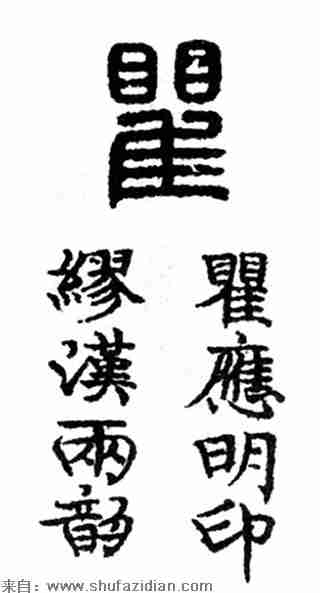 瞿
瞿應明印
繆漢兩韻
来自：www.shufazidian.com